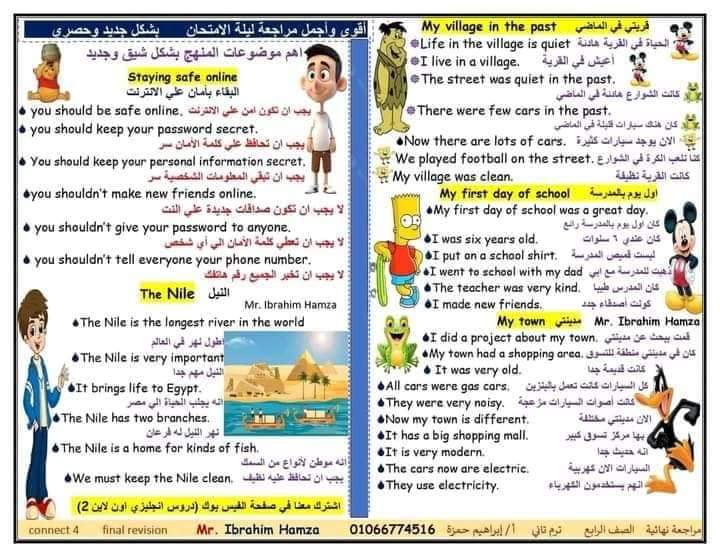 أقوى وأجمل مراجعة ليلة الامتحان بشكل جديد وحصرى
اهم موضوعات المنهج بشكل شيق وجديد
Staying safe online
البقاء بأمان علي الانترنت
you should be safe online. يجب ان تكون امن علي الانترنت
you should keep your password secret.
يجب ان تحافظ علي كلمة الأمان سر
You should keep your personal information secret.
يجب ان تبقي المعلومات الشخصية سر
you shouldn't make new friends online.
لا يجب ان تكون صداقات جديدة علي النت
you shouldn't give your password to anyone.
لا يجب ان تعطي كلمة الأمان الي أي شخص
you shouldn't tell everyone your phone number.
لا يجب ان تخبر الجميع رقم هاتفك
The Nile النيل
Mr. Ibrahim Hamza
The Nile is the longest river in the world
اطول نهر في العالم
The Nile is very important
النيل مهم جدا
It brings life to Egypt.
انه يجلب الحياة الي مصر
The Nile has two branches.
نهر النيل له فرعان
The Nile is a home for kinds of fish.
انه موطن لأنواع من السمك
We must keep the Nile clean. يجب ان نحافظ عليه نظيف
اشترك معنا في صفحة الفيس بوك (دروس انجليزي اون لاين 2)
My village in the past قريتي في الماضي
Life in the village is quiet الحياة في القرية هادئة
I live in a village. أعيش في القرية
The street was quiet in the past.
كانت الشوارع هادئة في الماضي
There were few cars in the past.
كان هناك سيارات قليلة في الماضي
Now there are lots of cars. الان يوجد سيارات كثيرة
We played football on the street. كنا نلعب الكرة في الشوارع
My village was clean. كانت القرية نظيفة
My first day of school اول يوم بالمدرسة
My first day of school was a great day.
كان اول يوم بالمدرسة رائع
I was six years old. كان عندي ٦ سنوات
I put on a school shirt. لبست قميص المدرسة
I went to school with my dad ذهبت للمدرسة مع ابي
The teacher was very kind. كان المدرس طيبا
I made new friends. كونت أصدقاء جدد
My town مدينتي Mr. Ibrahim Hamza
I did a project about my town. قمت ببحث عن مدينتي
My town had a shopping area. كان في مدينتي منطقة للتسوق
It was very old. كانت قديمة جدا
All cars were gas cars. كل السيارات كانت تعمل بالبنزين
They were very noisy. كانت أصوات السيارات مزعجة
Now my town is different. الان مدينتي مختلفة
It has a big shopping mall. بها مركز تسوق كبير
It is very modern. انه حديث جدا
The cars now are electric. السيارات الان كهربية
They use electricity. انهم يستخدمون الكهرباء
connect 4 final revision Mr. Ibrahim Hamza 01066774516 أ/ إبراهيم حمزة ترم ثاني الصف الرابع مراجعة نهائية